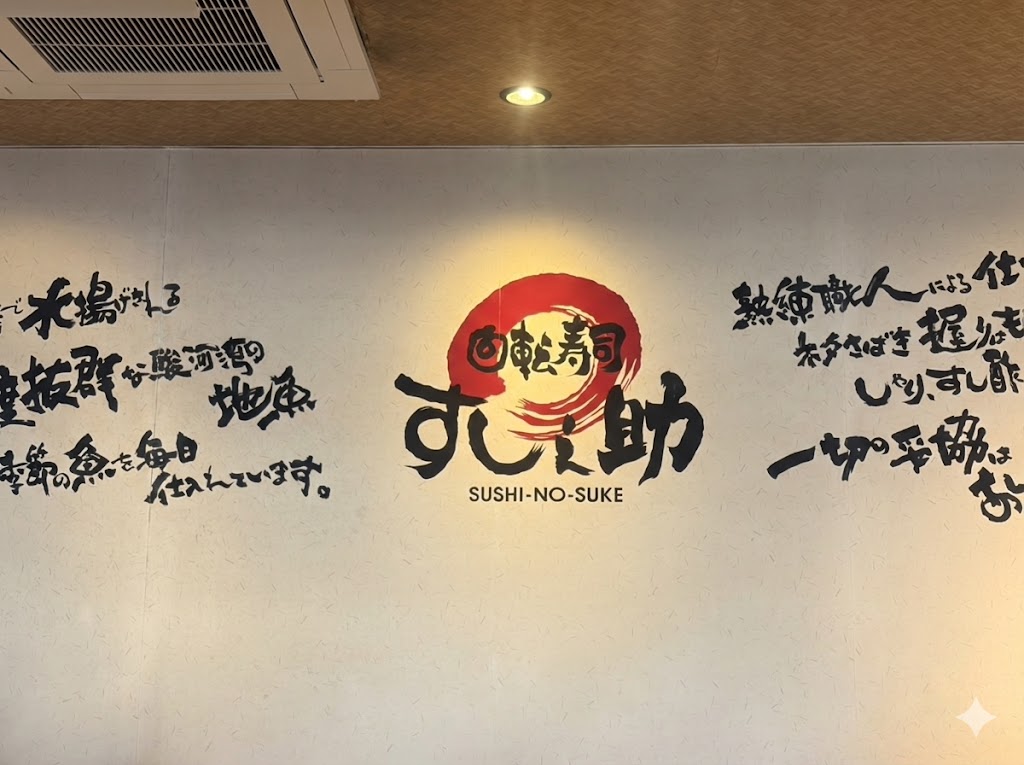 で水揚げされる
抜群な駿河湾の
地魚
季節の魚を毎日
仕入れています。
回転寿司
すし之助
SUSHI-NO-SUKE
熟練職人による仕
ネタさばき握りはも
しゃり、すし酢
一切の妥協は
あ